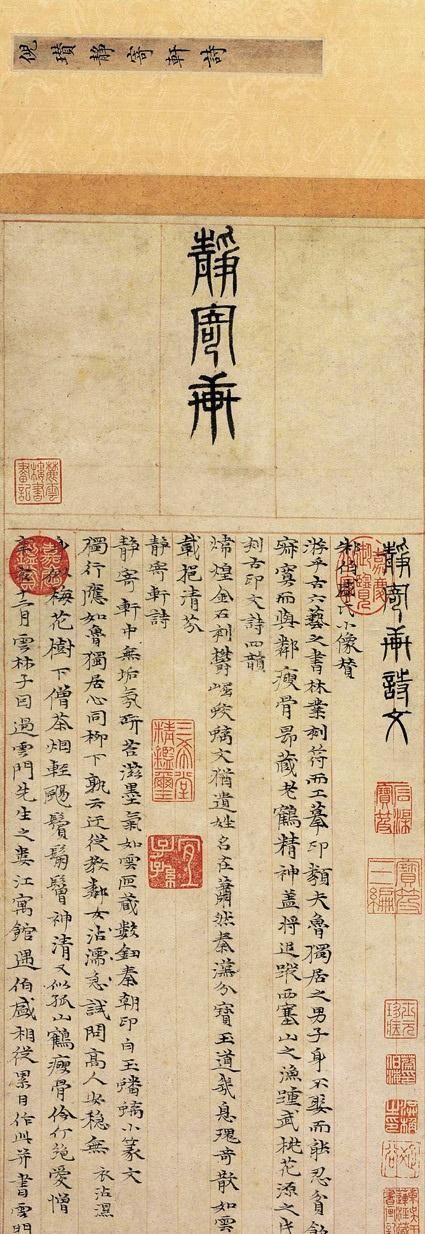 倪瓚靜寄軒詩
靜寄軒
靜寄軒詩文
朱伯盛氏小像贊
游乎古六藝之書林業刻符而工摹印類夫魯獨居之男子身不娶而能忍貧飢
寂寞而與鄰瘦骨昂藏老鶴精神蓋將追蹤西塞山之漁踵武桃花源之
刻古印文詩四韻
煒煌金石刻欝崛蛟螭文猶遺姓名在蕭然秦漢分寶玉道或息瑰奇散如雲
載挹清芬
靜寄軒詩
靜寄軒中無垢氛研苔滋墨氣如雲匣藏數鈕秦朝印白玉蟠螭小篆文
獨行應如魯獨居心同柳下孰云迂從教鄰女沾濡急試問高人安穩無 衣沾濕
梅花樹下僧茶烟輕颺鬢鬅鬙神清又似孤山鶴瘦骨伶仃絶愛憎
十二月雲林子因過雲門先生之婁江寓館遇伯盛相從累日作此并書雲門
三希堂精鑑璽
宜子孫
寶笈三編